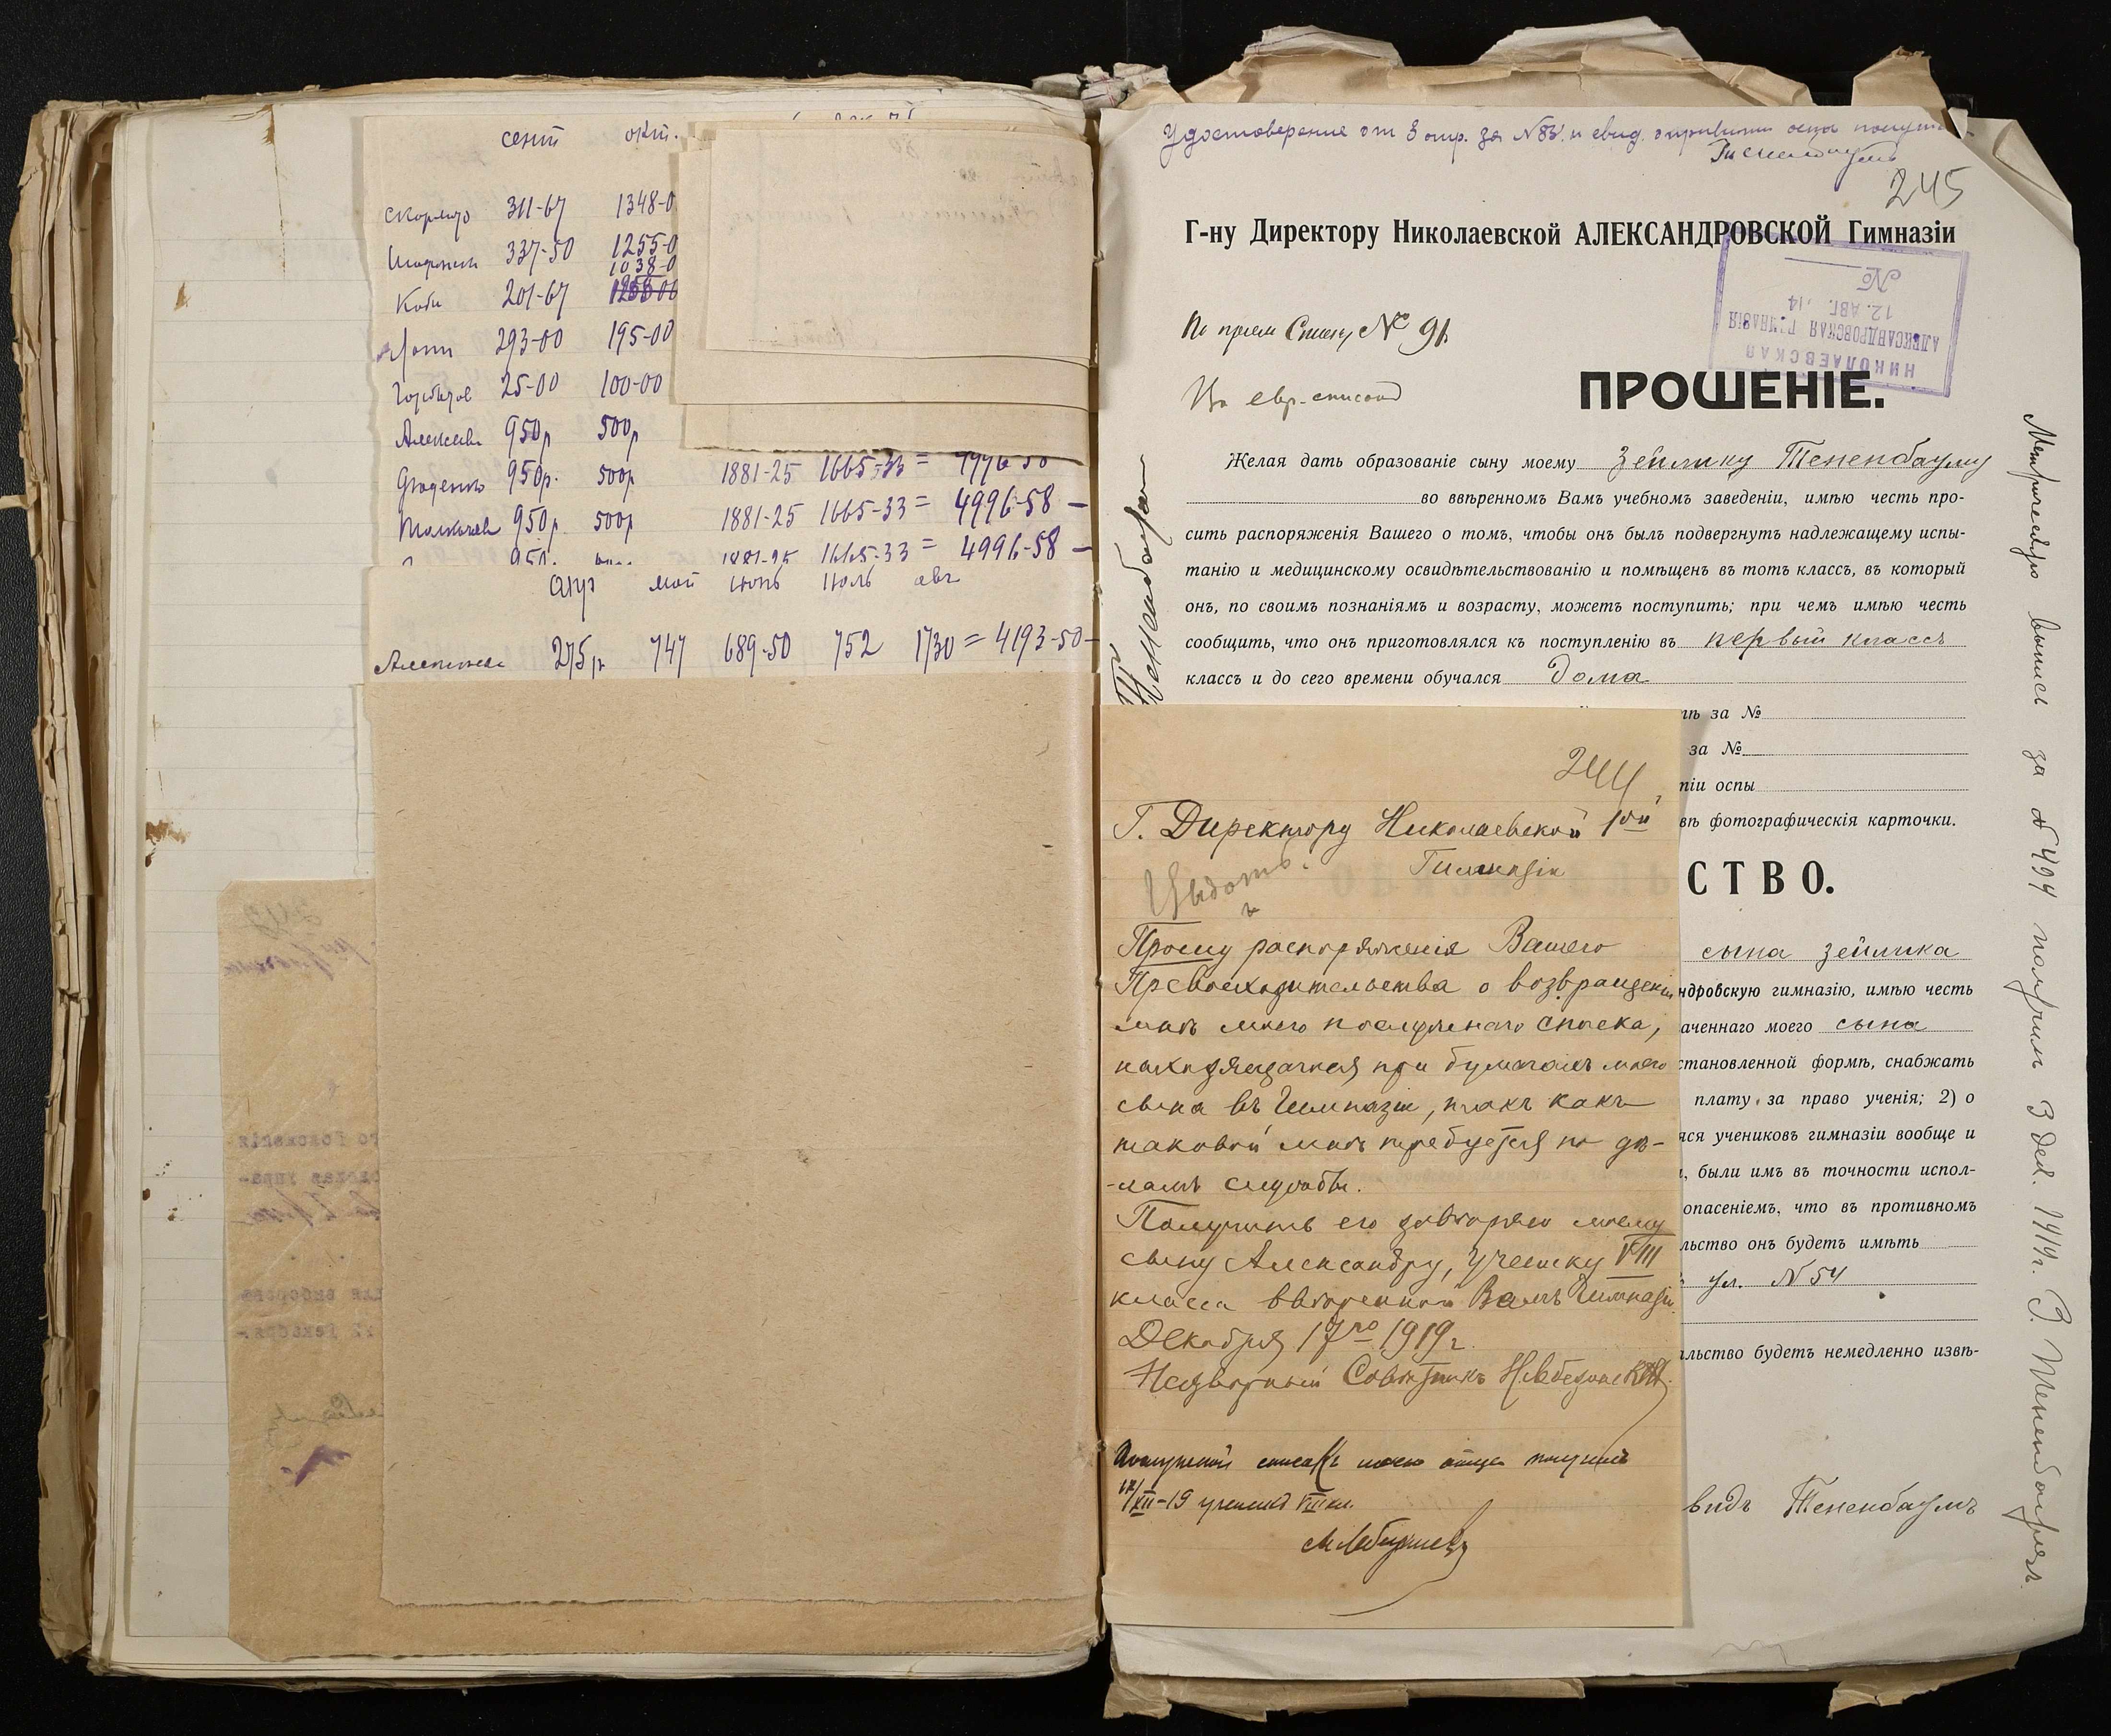 сент окт.
311-67 1348-0
337-50 1255-0
1038-0
Коби 201-67 1255-00
293-00 195-00
25-00 100-00
950р 500р
950р. 500р 1881-25 1665-33 =
950р. 500р 1881-25 1665-33 = 4996-58 —
1665-33 = 4996-58 —
апр май июнь июль авг
275р 747 689-50 752 1730 = 4193-50-
Удостоверение от 3 апр. за № 85. и свид. о привитии оспы получил
Тененбаумъ
245
Г-ну Директору Николаевской АЛЕКСАНДРОВСКОЙ Гимназіи
НИКОЛАЕВСКАЯ
АЛЕКСАНДРОВСКАЯ ГИМНАЗІЯ
12. АВГ. 14
№
По прием Списку № 91.
На евр. список
ПРОШЕНІЕ.
Желая дать образованіе сыну моему Зейлику Тененбауму
во ввѣренномъ Вамъ учебномъ заведеніи, имѣю честь про-
сить распоряженія Вашего о томъ, чтобы онъ былъ подвергнутъ надлежащему испы-
танію и медицинскому освидѣтельствованію и помѣщенъ въ тотъ классъ, въ который
онъ, по своимъ познаніямъ и возрасту, можетъ поступить; при чемъ имѣю честь
сообщить, что онъ приготовлялся къ поступленію въ первый классъ
классъ и до сего времени обучался дома
ть за №
за №
тіи оспы
вѣ фотографическія карточки.
СТВО.
сына Зейлика
ндровскую гимназію, имѣю честь
аченнаго моего сына
становленной формѣ, снабжать
плату за право ученія; 2) о
яся учениковъ гимназіи вообще и
, были имъ въ точности испол-
опасеніемъ, что въ противномъ
льство онъ будетъ имѣть
ул. № 54
льство будетъ немедленно извѣ-
видъ Тененбаумъ
Метрическую выпись за № 494 получилъ 3 дек. 1919г. З. Тененбаумъ.
Тененбаум
244
Г. Директору Николаевской 1ой
Гимназіи
Выдать.
Прошу распоряженія Вашего
Превосходительства о возвращеніи
мнѣ моего послужного списка,
находящагося при бумагахъ моего
сына въ Гимназіи, такъ какъ
таковой мнѣ требуется по дѣ-
-ламъ службы.
Получить его довѣряю моему
сыну Александру, ученику VIII
класса ввѣренной Вамъ Гимназіи.
Декабря 17го 1919г.
Надворный Совѣтникъ
Послужной списокъ моего отца получилъ
17/XII-19 ученикъ VIII кл.